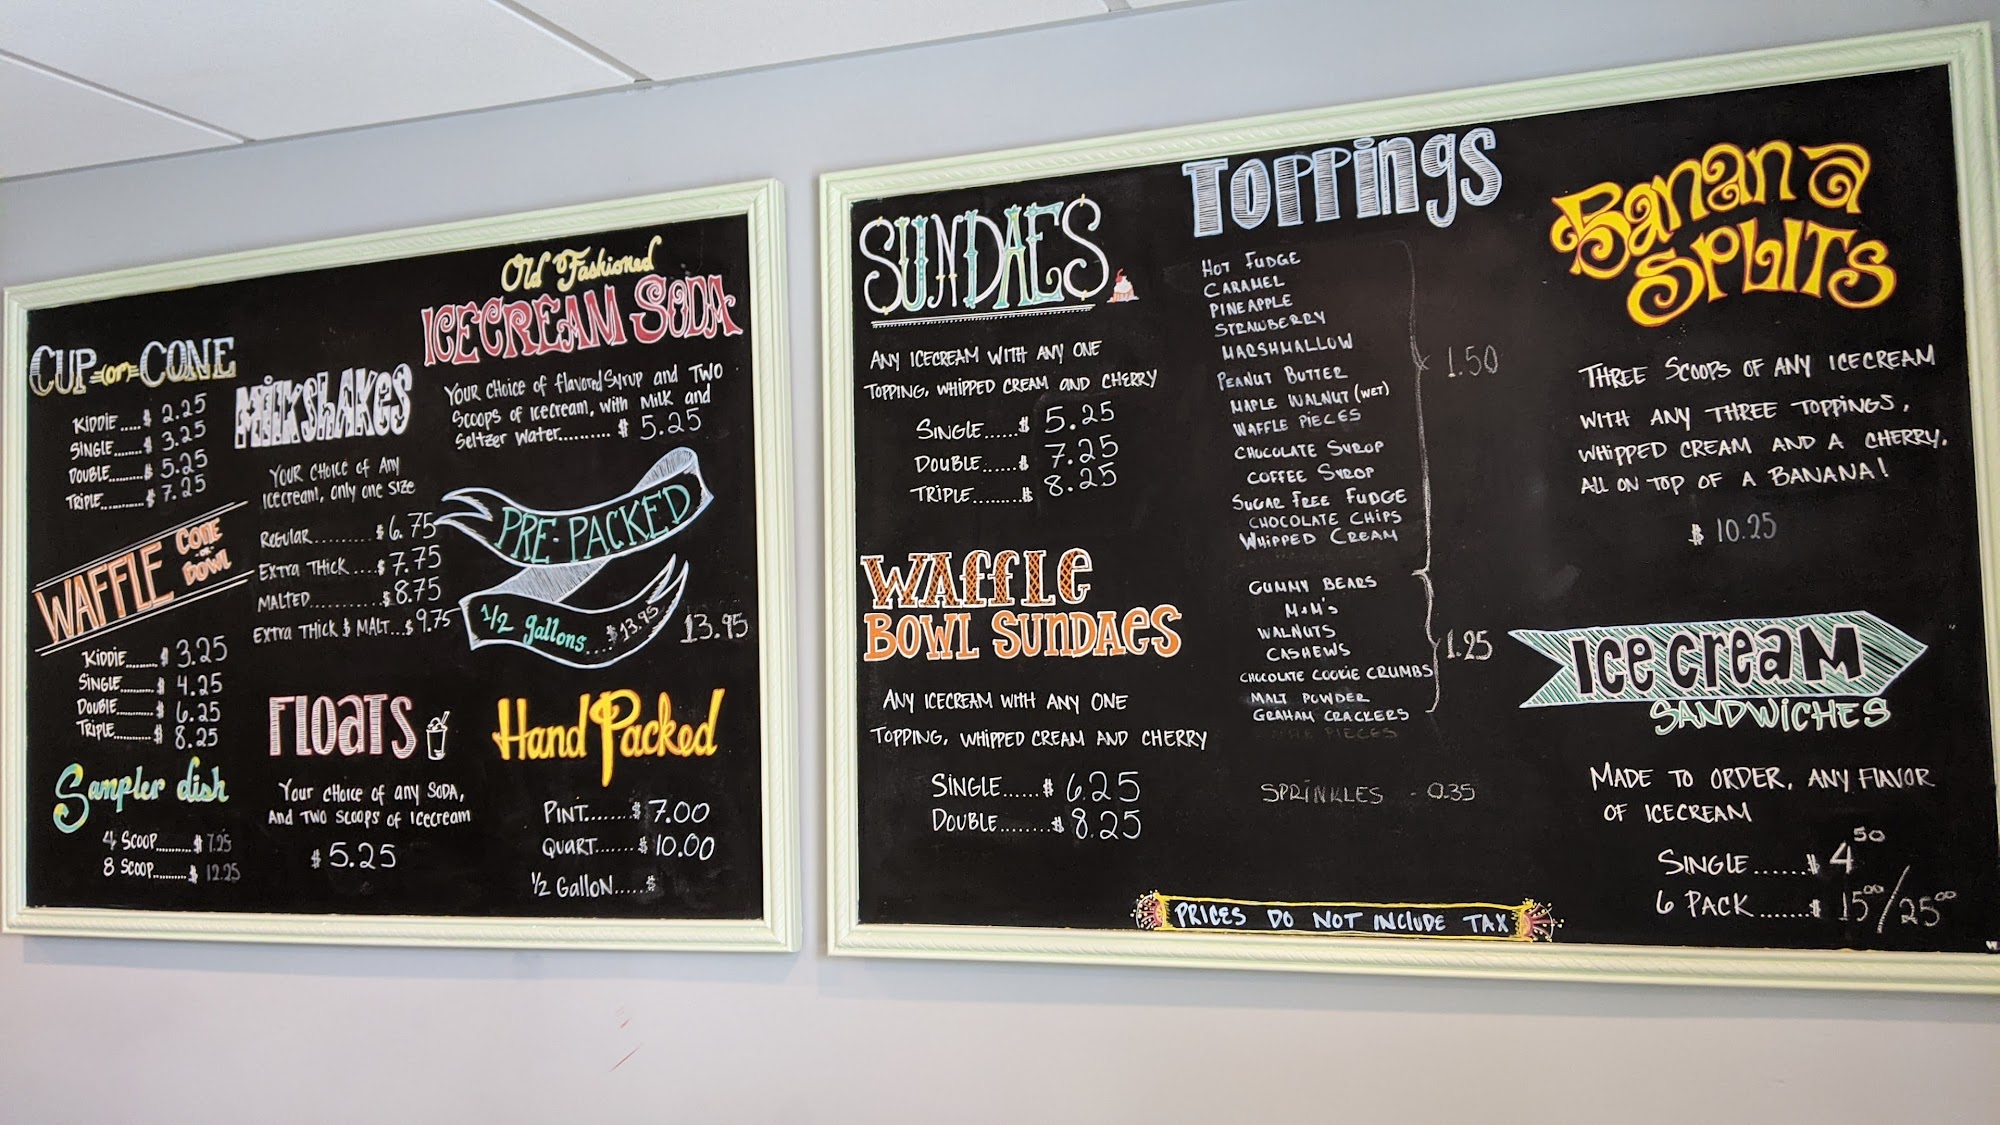 CUP or CONE
KIDDIE.....$ 2.25
SINGLE........$ 3.25
DOUBLE........$ 5.25
TRIPLE............$ 7.25
WAFFLE CONE or BOWL
KIDDIE.........$ 3.25
SINGLE............$ 4.25
DOUBLE............$ 6.25
TRIPLE............$ 8.25
Sampler dish
4 SCOOP..........$ 7.95
8 SCOOP..........$ 12.25
MILKSHAKES
YOUR CHOICE OF ANY
ICECREAM, ONLY ONE SIZE
REGULAR............$6.75
EXTRA THICK....$7.75
MALTED............$8.75
EXTRA THICK $ MALT...$9.75
FLOATS
YOUR CHOICE OF ANY SODA,
AND TWO SCOOPS OF ICECREAM
$5.25
Old Fashioned
ICECREAM SODA
YOUR CHOICE OF FLAVORED SYRUP AND TWO
SCOOPS OF ICECREAM, WITH MILK AND
SELTZER WATER.......... $ 5.25
PRE-PACKED
1/2 gallons....$13.95 13.95
Hand Packed
PINT........$7.00
QUART.......$10.00
1/2 GALLON.....$
SUNDAES
ANY ICECREAM WITH ANY ONE
TOPPING, WHIPPED CREAM AND CHERRY
SINGLE......$ 5.25
DOUBLE......$ 7.25
TRIPLE........$ 8.25
WAFFLE
BOWL SUNDAES
ANY ICECREAM WITH ANY ONE
TOPPING, WHIPPED CREAM AND CHERRY
SINGLE......$ 6.25
DOUBLE........$ 8.25
TOPPINGS
HOT FUDGE
CARAMEL
PINEAPPLE
STRAWBERRY
MARSHMALLOW
1.50
PEANUT BUTTER
MAPLE WALNUT (WET)
WAFFLE PIECES
CHOCOLATE SYROP
COFFEE SYROP
SUGAR FREE FUDGE
CHOCOLATE CHIPS
WHIPPED CREAM
GUMMY BEARS
M+M's
WALNUTS
1.25
CASHEWS
CHOCOLATE COOKIE CRUMBS
MALT POWDER
GRAHAM CRACKERS
PIECES
SPRINKLES - 0.35
PRICES DO NOT INCLUDE TAX
Banana
SPLITS
THREE SCOOPS OF ANY ICECREAM
WITH ANY THREE TOPPINGS,
WHIPPED CREAM AND A CHERRY.
ALL ON TOP OF A BANANA!
$ 10.25
Ice cream
SANDWICHES
MADE TO ORDER, ANY FLAVOR
OF ICECREAM
SINGLE......$ 4 50
6 PACK......$ 15 00/25 00